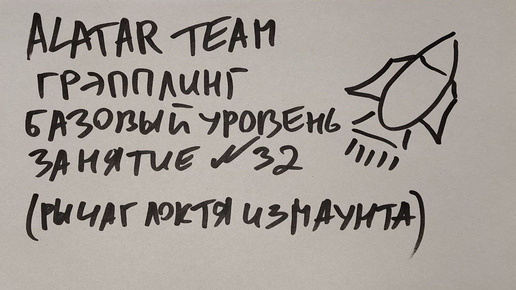 ALATAR TEAM
ГРЭППЛИНГ
БАЗОВЫЙ УРОВЕНЬ
ЗАНЯТИЕ №32
(РЫЧАГ ЛОКТЯ ИЗ МАУНТА)